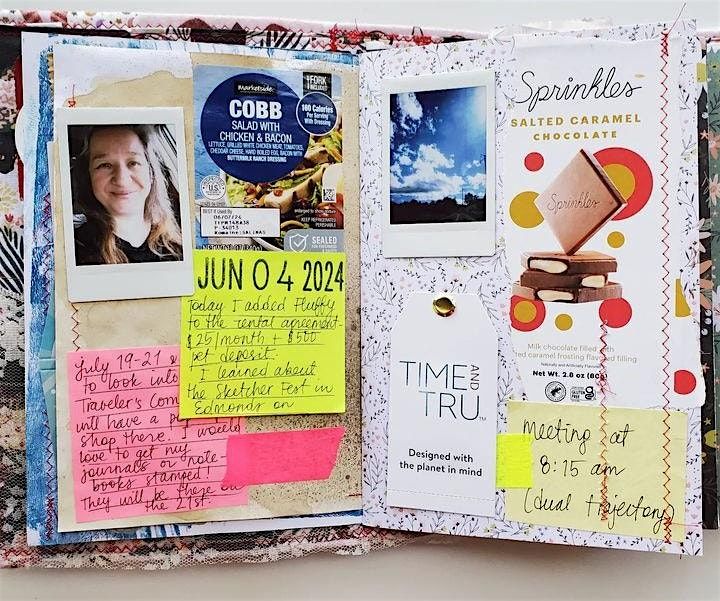 marketside
FORK
INCLUDED
COBB
SALAD WITH
CHICKEN & BACON
160 Calories
Per Serving
With Dressing
LETTUCE, GRILLED WHITE CHICKEN MEAT, TOMATOES,
CHEDDAR CHEESE, HARD BOILED EGG, BACON WITH
BUTTERMILK RANCH DRESSING
U.S.
BEST if Used By
06/07/24
Romaine:SALINAS
KEEP REFRIGERATED
PERISHABLE
SEALED
JUN 04 2024
Today I added Fluffy
to the rental agreement-
$25/month + $500
pet deposit.
I learned about
the Sketcher Fest in
Edmonds on
July 19-21 &
to look into
Traveler's Com
will have a p
shop there. I would
love to get my
journals or note-
books stamped!
They will be there on
the 21st.
Sprinkles
SALTED CARAMEL
CHOCOLATE
Sprinkles
Milk chocolate filled with
ted caramel frosting flavored filling
Naturally and Artificially Flavored
Net Wt. 2.8 oz (80g)
TIME AND TRU™
Designed with
the planet in mind
Meeting at
8:15 am
(dual trajectory)